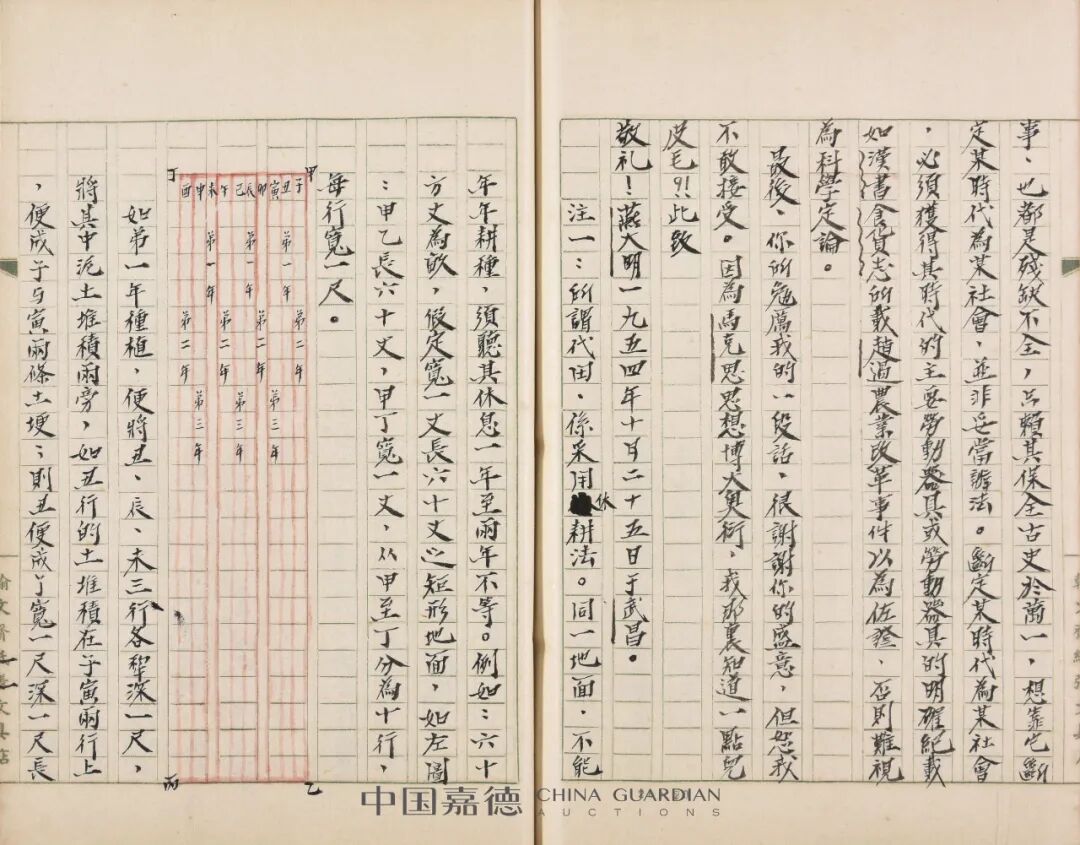 事、也都是殘缺不全，只賴其保全古史於萬一，想靠它斷
定某時代為某社會，並非妥當辦法。斷定某時代為某社會
，必須獲得其時代的主要勞動器具或勞動器具的明確紀載
如漢書食貨志所載趙過農業改革事件以為佐證，否則難視
為科學定論。
最後、你所勉厲我的一段話，很謝謝你的盛意，但恕我
不敢接受。因為馬克思思想博大奧衍，我那裏知道一點兒
皮毛？！！此致
敬礼！燕大明一九五四年十月二十五日于武昌。
注一：所謂代田、係采用休耕法。同一地面，不能
年年耕種，須聽其休息一年至兩年不等。例如：六十
方丈為畝，假定寬一丈長六十丈之矩形地面，如左圖
：甲乙長六十丈，甲丁寬一丈，从甲至丁分為十行，
每行寬一尺。
甲
子 第二年
丑 第一年
寅 第三年
卯 第二年
辰 第一年
巳 第三年
午 第二年
未 第一年
申 第三年
酉 第二年
丁
乙
丙
如第一年種植，便將丑、辰、未三行各犂深一尺，
將其中泥土堆積兩旁，如丑行的土堆積在子寅兩行上
，便成子与寅兩條土埂：則丑便成了寬一尺深一尺長
中国嘉德 CHINA GUARDIAN
AUCTIONS